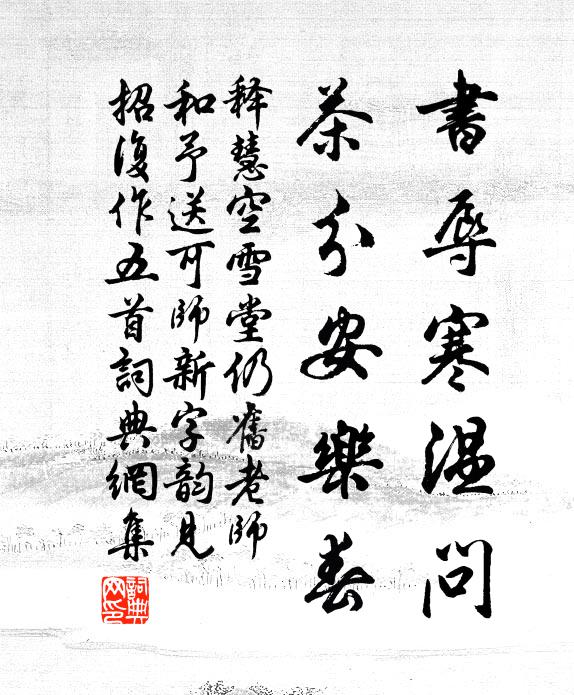 書辱寒温問
茶分安樂春
釋慧空雪堂仍舊老師
和予送可師新字韵見
招復作五首詞典網集